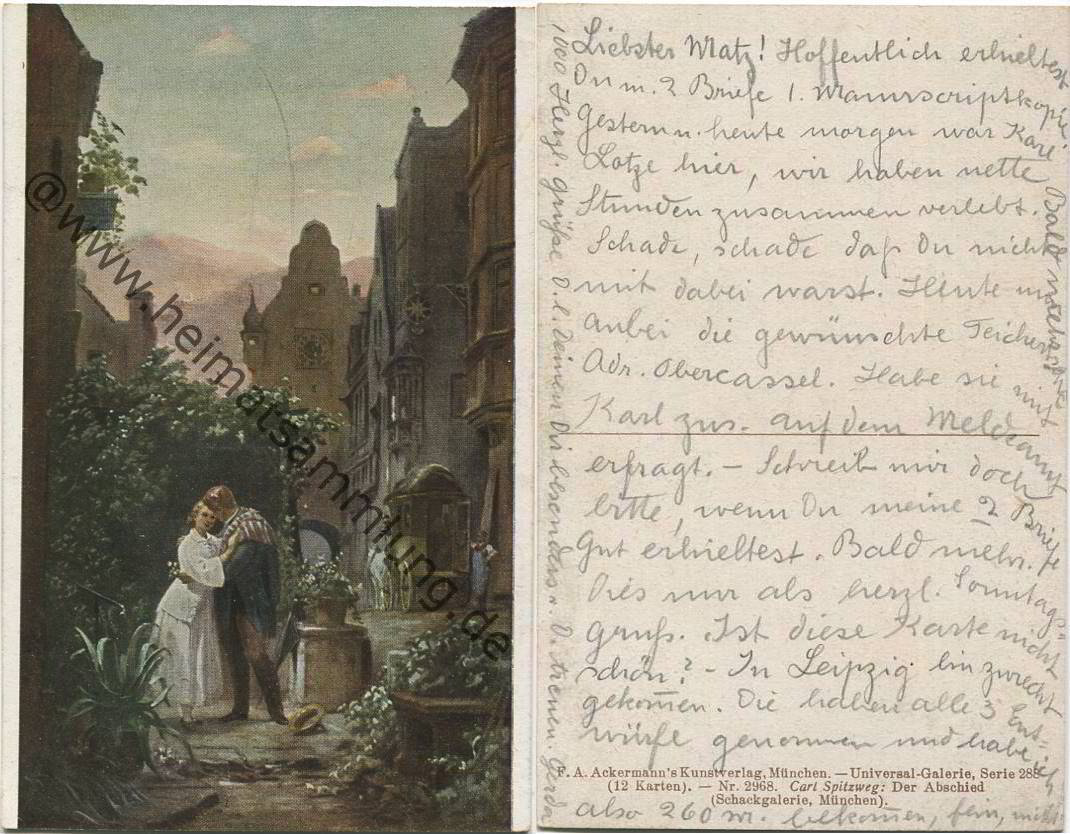 @www.heimatsammlung.de
Liebster Matz! Hoffentlich erhieltest
Du m. 2 Briefe 1. Manuscriptkopie.
Gestern u. heute morgen war Karl
Lotze hier, wir haben nette
Stunden zusammen verlebt.
Schade, schade daß Du nicht
mit dabei warst. Heute
anbei die gewünschte Teichert
Adr. Obercassel. Habe sie mit
Karl zus. auf dem Meldeamt
erfragt. – Schreib mir doch
bitte, wenn Du meine 2 Briefe
Gut erhieltest. Bald mehr.
Dies nur als herzl. Sonntags-
gruß. Ist diese Karte nicht
schön? – In Leipzig bin zurecht
gekommen. Die haben alle 3 Ent-
würfe genommen und habe ich
also 260 M. bekommen, fein, nicht
Bald
1000 Herzl. Grüße D. l. Deinen Dir besonders v. D. treuen. Gerda
F. A. Ackermann's Kunstverlag, München. — Universal-Galerie, Serie 288
(12 Karten). — Nr. 2968. Carl Spitzweg: Der Abschied
(Schackgalerie, München).